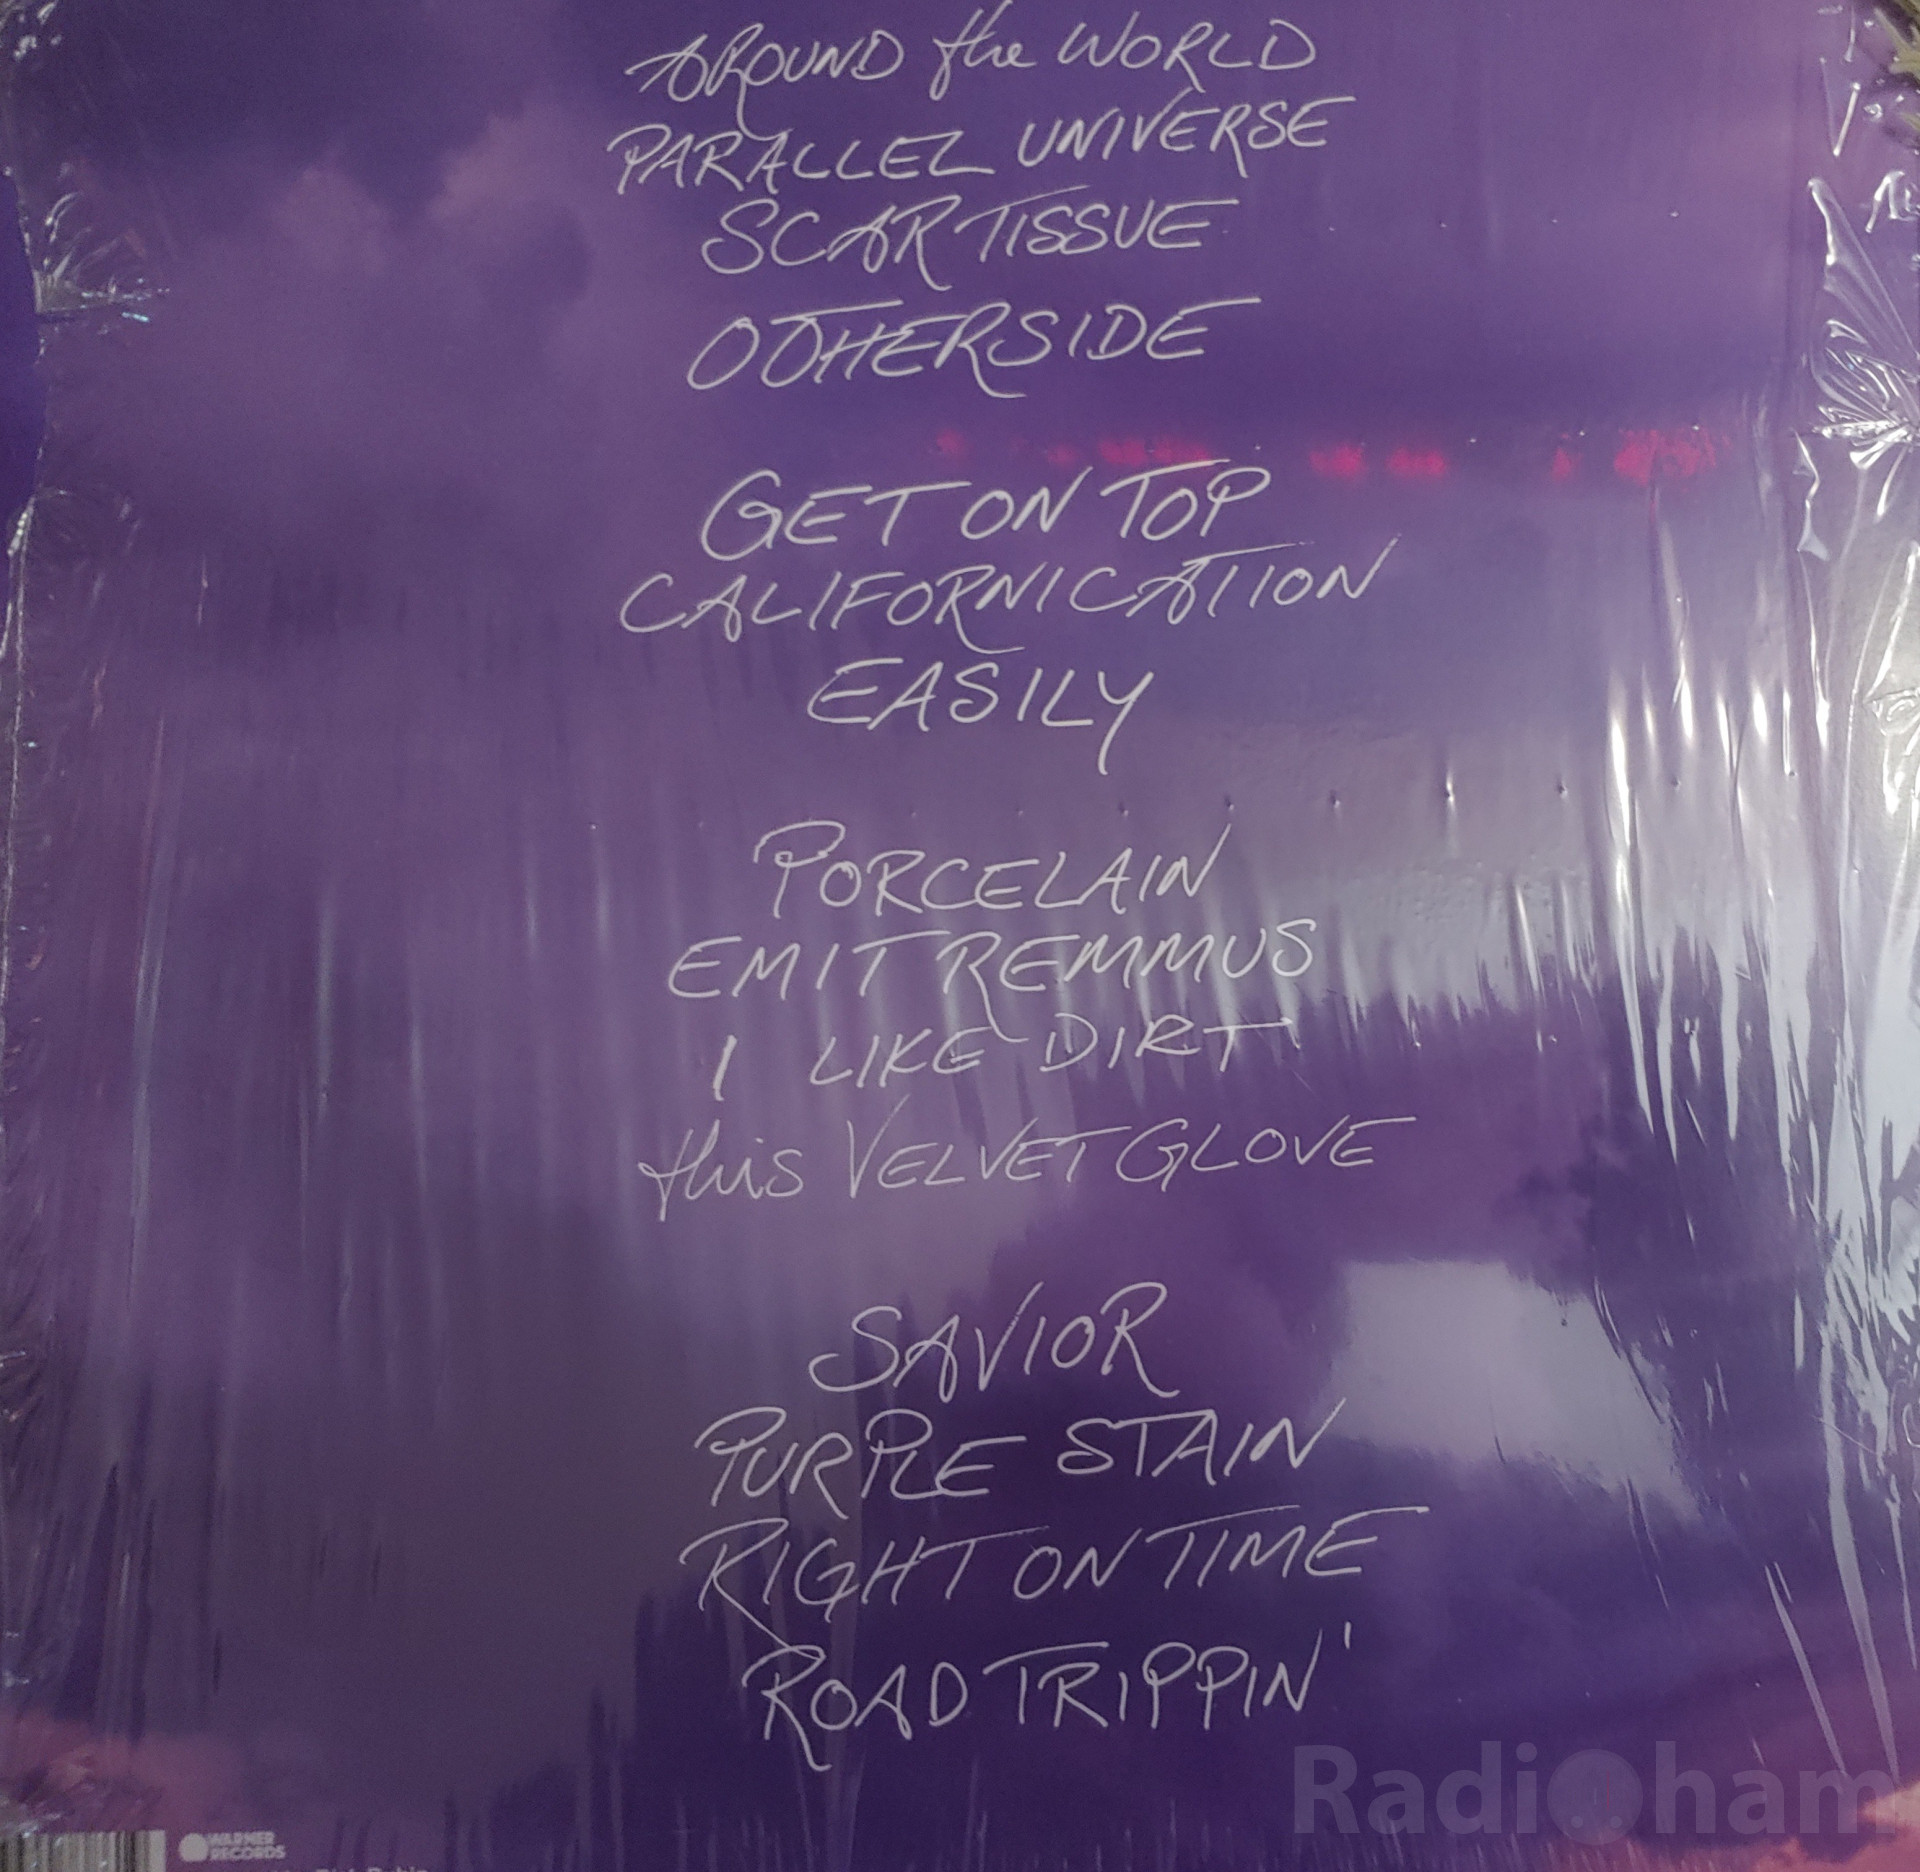 AROUND the WORLD
PARALLEL UNIVERSE
SCAR TISSUE
OTHERSIDE
GET ON TOP
CALIFORNICATION
EASILY
PORCELAIN
EMIT REMMUS
I LIKE DIRT
this VELVET GLOVE
SAVIOR
PURPLE STAIN
RIGHT ON TIME
ROAD TRIPPIN'
Radioham
WARNER
RECORDS